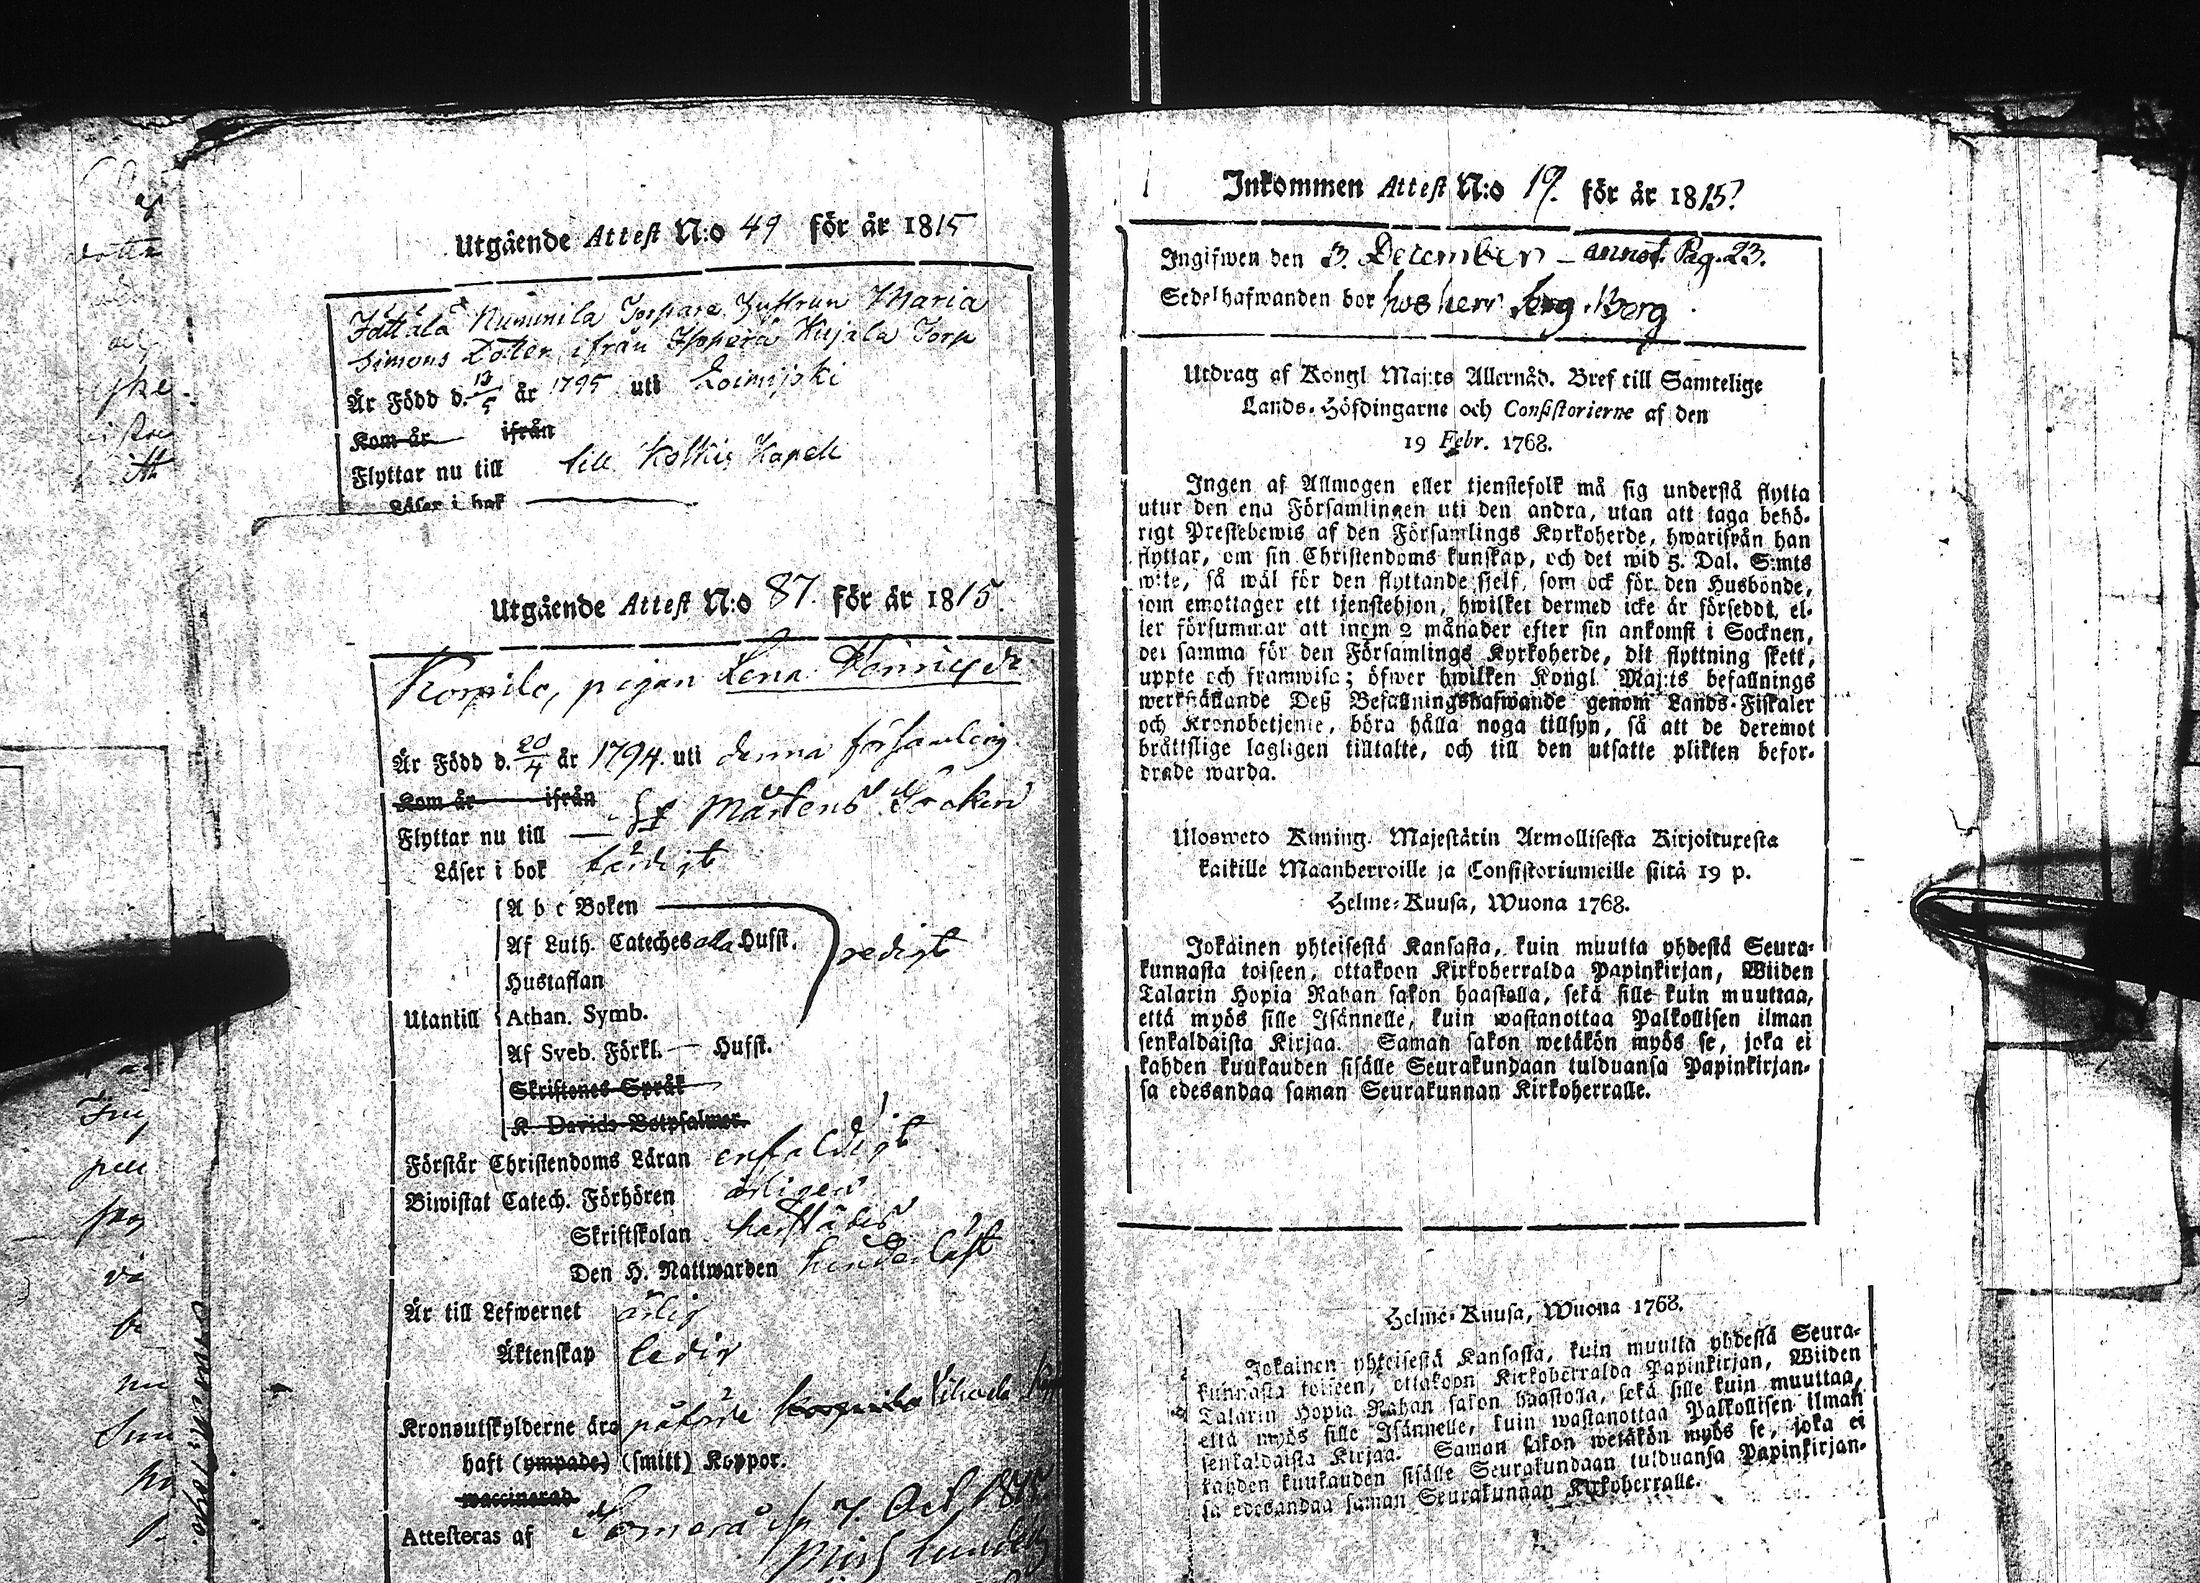 Utgående Attest N:o 49 för år 1815
Jättälä Nummila Torpare Hustrun Maria
Simons Dotter ifrån Ypperä Kujala Torp
Är Född d. 13/5 år 1795 uti Loimijoki
Kom år ifrån
Flyttar nu till till Koskis Kapell
Läser i bok
Utgående Attest N:o 87. för år 1815.
pigan Lena
Är Född d. 20/4 år 1794. uti denna församling
Kom år ifrån
Flyttar nu till St Mårtens Sokn
Läser i bok färdigt
A b c Boken
Af Luth. Cateches alla Hufst. redigt
Hustaflan
Utantill Athan. Symb.
Af Sveb. Förkl. Hufst.
Skriftenes Språk
K Davids Botpsalmer
Förstår Christendoms Läran enfaldigt
Biwistat Catech. Förhören årligen
Skriftskolan
Den H. Nattwarden
Är till Lefwernet ärlig
Äktenskap ledig
Kronoutskylderne äro påförde
haft (ympade) (smitt) Koppor.
waccinerad
Attesteras af Somero 7. Oct. 1815
Inkommen Attest N:o 19. för år 1815.
Ingifwen den 3. December annot. Pag. 23.
Sedelhafwanden bor hos herr Berg
Utdrag af Kongl Maj:ts Allernåd. Bref till Samtelige
Lands-Höfdingarne och Consistorierne af den
19 Febr. 1768.
Ingen af Allmogen eller tjenstefolk må sig understå flytta
utur den ena Församlingen uti den andra, utan att taga behö-
rigt Prestebewis af den Församlings Kyrkoherde, hwarifrån han
flyttar, om sin Christendoms kunskap, och det wid 5. Dal. S:mts
wite, så wäl för den flyttande sjelf, som ock för den Husbonde,
som emottager ett tjenstehjon, hwilket dermed icke är försedt, el-
ler försummar att inom 2 månader efter sin ankomst i Socknen,
det samma för den Församlings Kyrkoherde, dit flyttning skett,
uppte och framwisa; öfwer hwilken Kongl. Maj:ts befallnings
werkställande Deß Befallningshafwande genom Lands-Fiskaler
och Kronobetjente, böra hålla noga tillsyn, så att de deremot
bråttslige lagligen tilltalte, och till den utsatte plikten befor-
drade warda.
Ulosweto Kuning. Majestätin Armollisesta Kirjoituxesta
kaikille Maanherroille ja Consistoriumeille siitä 19 p.
Helme-Kuusa, Wuona 1768.
Jokainen yhteisestä Kansasta, kuin muutta yhdestä Seura-
kunnasta toiseen, ottakoon Kirkoherralda Papinkirjan, Wiiden
Talarin Hopia Rahan sakon haastolla, sekä sille kuin muuttaa,
että myös sille Isännelle, kuin wastanottaa Palkollisen ilman
senkaldaista Kirjaa. Saman sakon wetäkön myös se, joka ei
kahden kuukauden sisälle Seurakundaan tulduansa Papinkirjan-
sa edesandaa saman Seurakunnan Kirkoherralle.
Helme-Kuusa, Wuona 1768.
Jokainen yhteisestä Kansasta, kuin muutta yhdestä Seura-
kunnasta toiseen, ottakoon Kirkoherralda Papinkirjan, Wiiden
Talarin Hopia Rahan sakon haastolla, sekä sille kuin muuttaa,
että myös sille Isännelle, kuin wastanottaa Palkollisen ilman
senkaldaista Kirjaa. Saman sakon wetäkön myös se, joka ei
kahden kuukauden sisälle Seurakundaan tulduansa Papinkirjan-
sa edesandaa saman Seurakunnan Kirkoherralle.